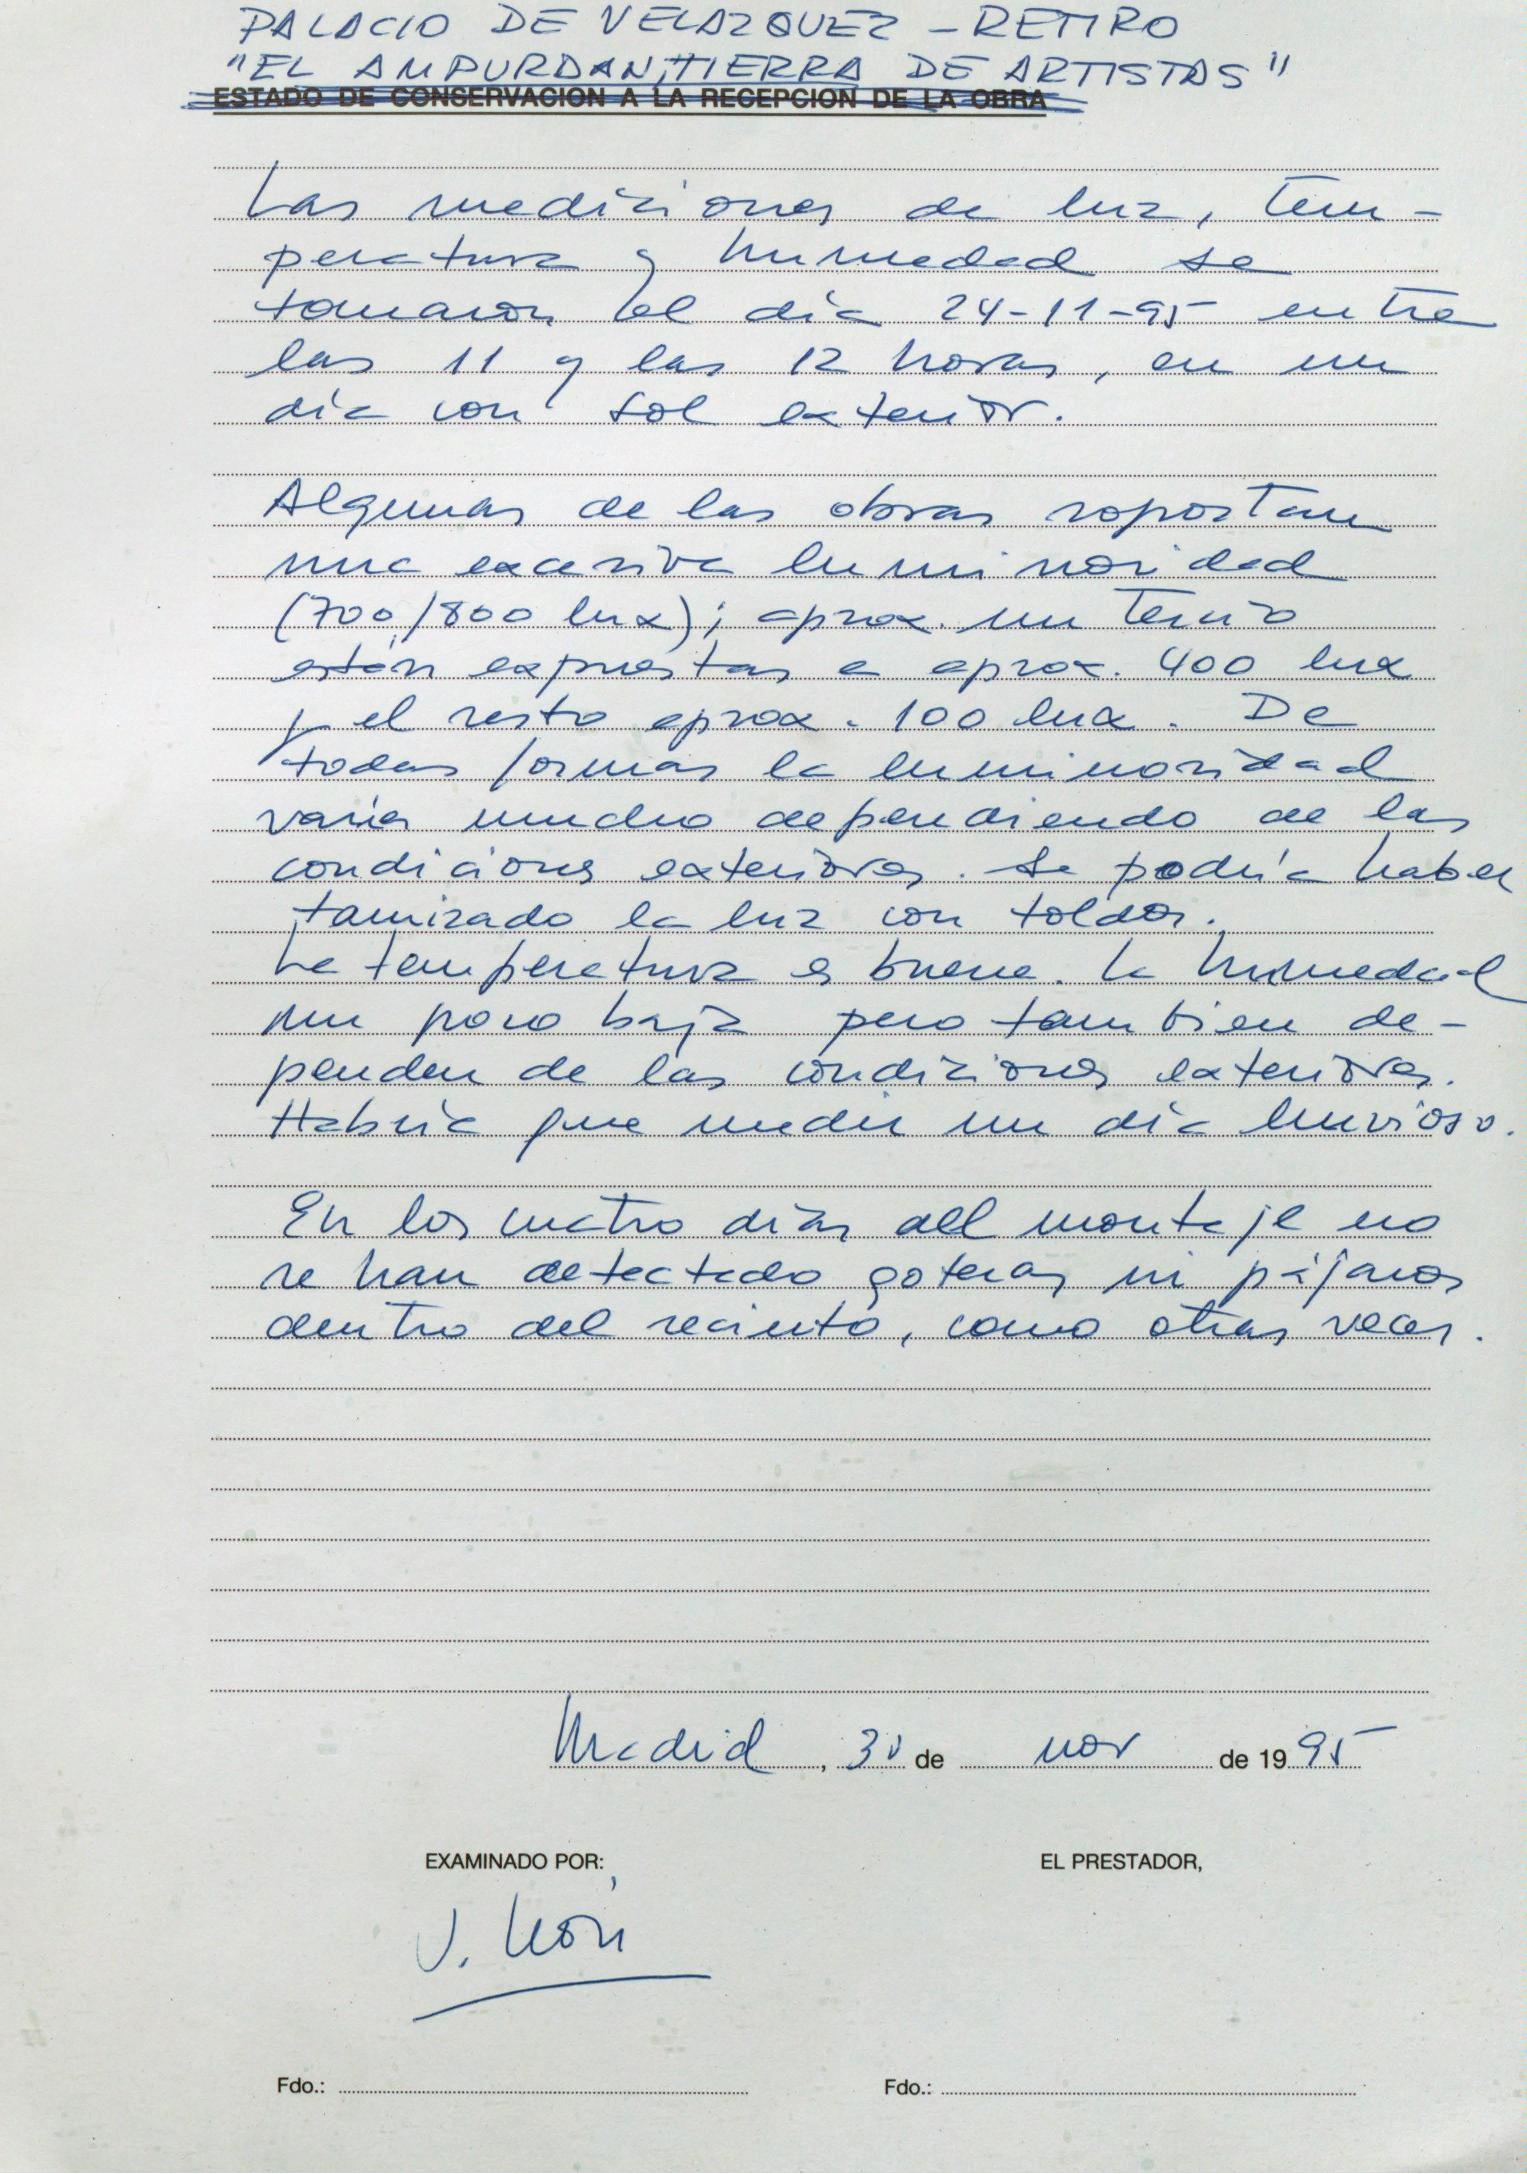 PALACIO DE VELAZQUEZ - RETIRO
"EL AMPURDAN, TIERRA DE ARTISTAS"
ESTADO DE CONSERVACION A LA RECEPCION DE LA OBRA
Las mediciones de luz, tem-
peratura y humedad se
tomaron el día 24-11-95 entre
las 11 y las 12 horas, en un
día con sol exterior.
Algunas de las obras soportan
una excesiva luminosidad
(700/800 lux); aprox. un tercio
están expuestas a aprox. 400 lux
y el resto aprox. 100 lux. De
todas formas la luminosidad
varia mucho dependiendo de las
condiciones exteriores. Se podría haber
tamizado la luz con toldos.
La temperatura es buena. La humedad
un poco baja pero tambien de-
penden de las condiciones exteriores.
Habría que medir un día lluvioso.
En los cuatro días del montaje no
se han detectado goteras ni pájaros
dentro del recinto, como otras veces.
Madrid, 30 de nov de 1995
EXAMINADO POR:
EL PRESTADOR,
J. León
Fdo.:
Fdo.: